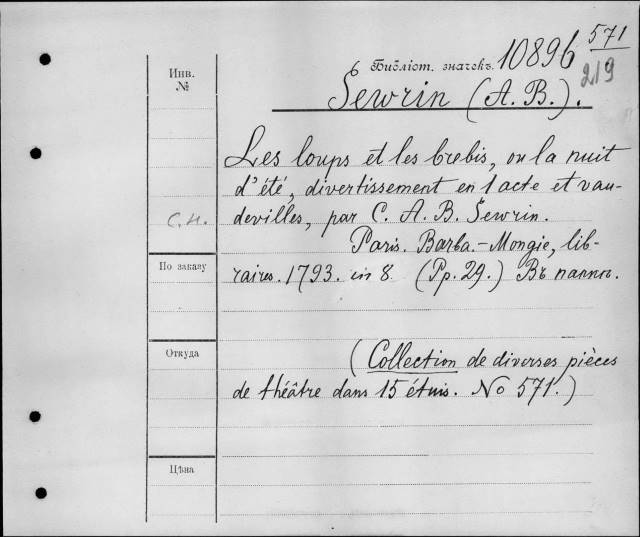 571
Библіот. значекъ. 10896
219
Инв.
№
Sewrin (A. B.).
Les loups et les brebis, ou la nuit
d'été, divertissement en 1 acte et vau-
devilles, par C. A. B. Sewrin.
С. Н.
Paris. Barba.-Mongie, lib-
raires. 1793. in 8. (Pp. 29.) Въ папкѣ.
По заказу
Откуда
(Collection de diverses pièces
de théâtre dans 15 étuis. No 571.)
Цѣна